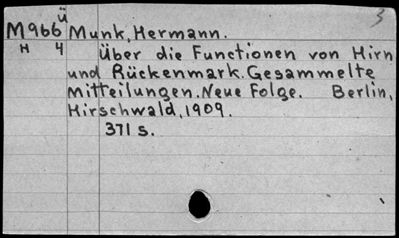 ü 3
M966 Munk, Hermann.
H 4 Über die Functionen von Hirn
und Rückenmark. Gesammelte
Mitteilungen. Neue Folge. Berlin,
Hirschwald, 1909.
371 s.